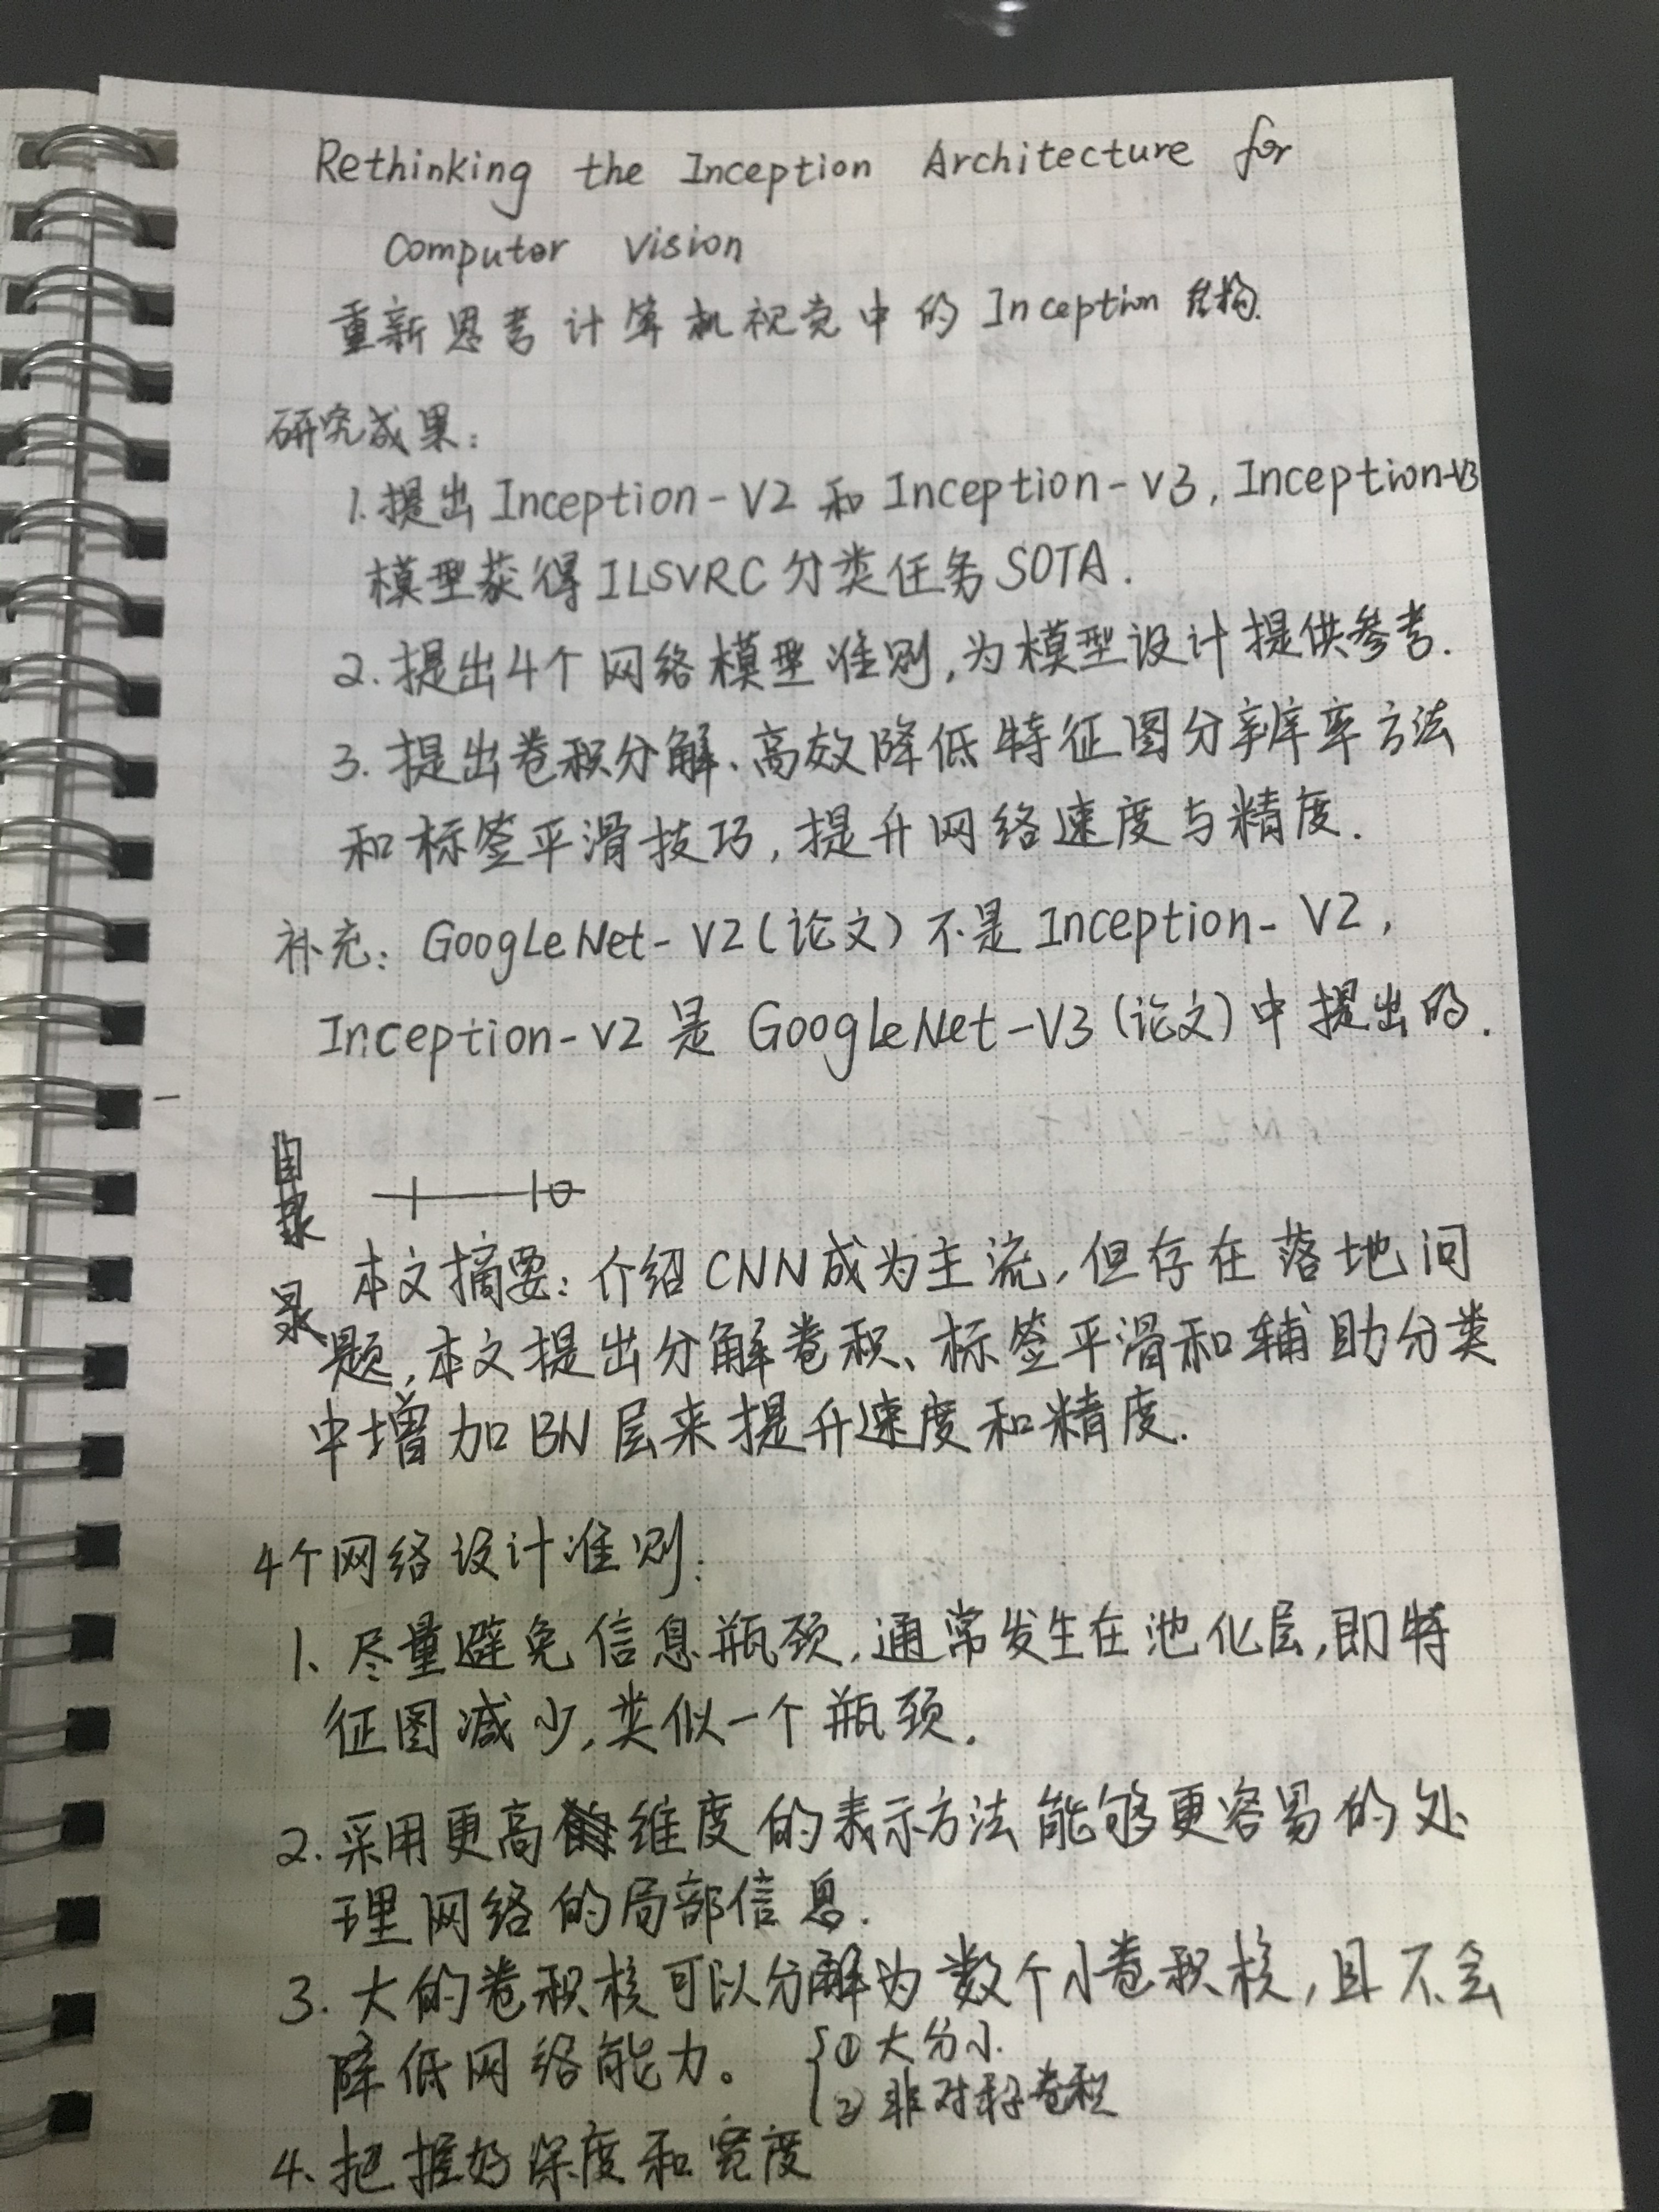 Rethinking the Inception Architecture for
Computer Vision
重新思考计算机视觉中的Inception结构.
研究成果:
1.提出Inception-V2和Inception-V3,Inception-V3
模型获得ILSVRC分类任务SOTA.
2.提出4个网络模型准则,为模型设计提供参考.
3.提出卷积分解、高效降低特征图分辨率方法
和标签平滑技巧,提升网络速度与精度.
补充: GoogLeNet-V2(论文)不是Inception-V2,
Inception-V2是GoogLeNet-V3(论文)中提出的.
本文摘要:介绍CNN成为主流,但存在落地问
题,本文提出分解卷积、标签平滑和辅助分类
中增加BN层来提升速度和精度.
4个网络设计准则:
1、尽量避免信息瓶颈,通常发生在池化层,即特
征图减少,类似一个瓶颈.
2.采用更高维度的表示方法能够更容易的处
理网络的局部信息.
3.大的卷积核可以分解为数个小卷积核,且不会
降低网络能力。 {①大分小.
②非对称卷积
4、把握好深度和宽度